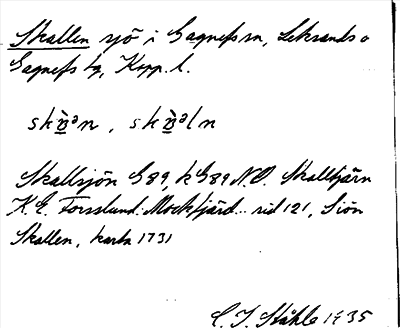 Skallen sjö i Gagnefs sn, Leksands o
Gagnefs tg, Kopp. l.
Skallsjön G89, k G89 N.O. Skalltjärn
K.E. Forsslund: Mockfjärd.. sid 121, Siön
Skallen, karta 1731
C. I. Ståhle 1935